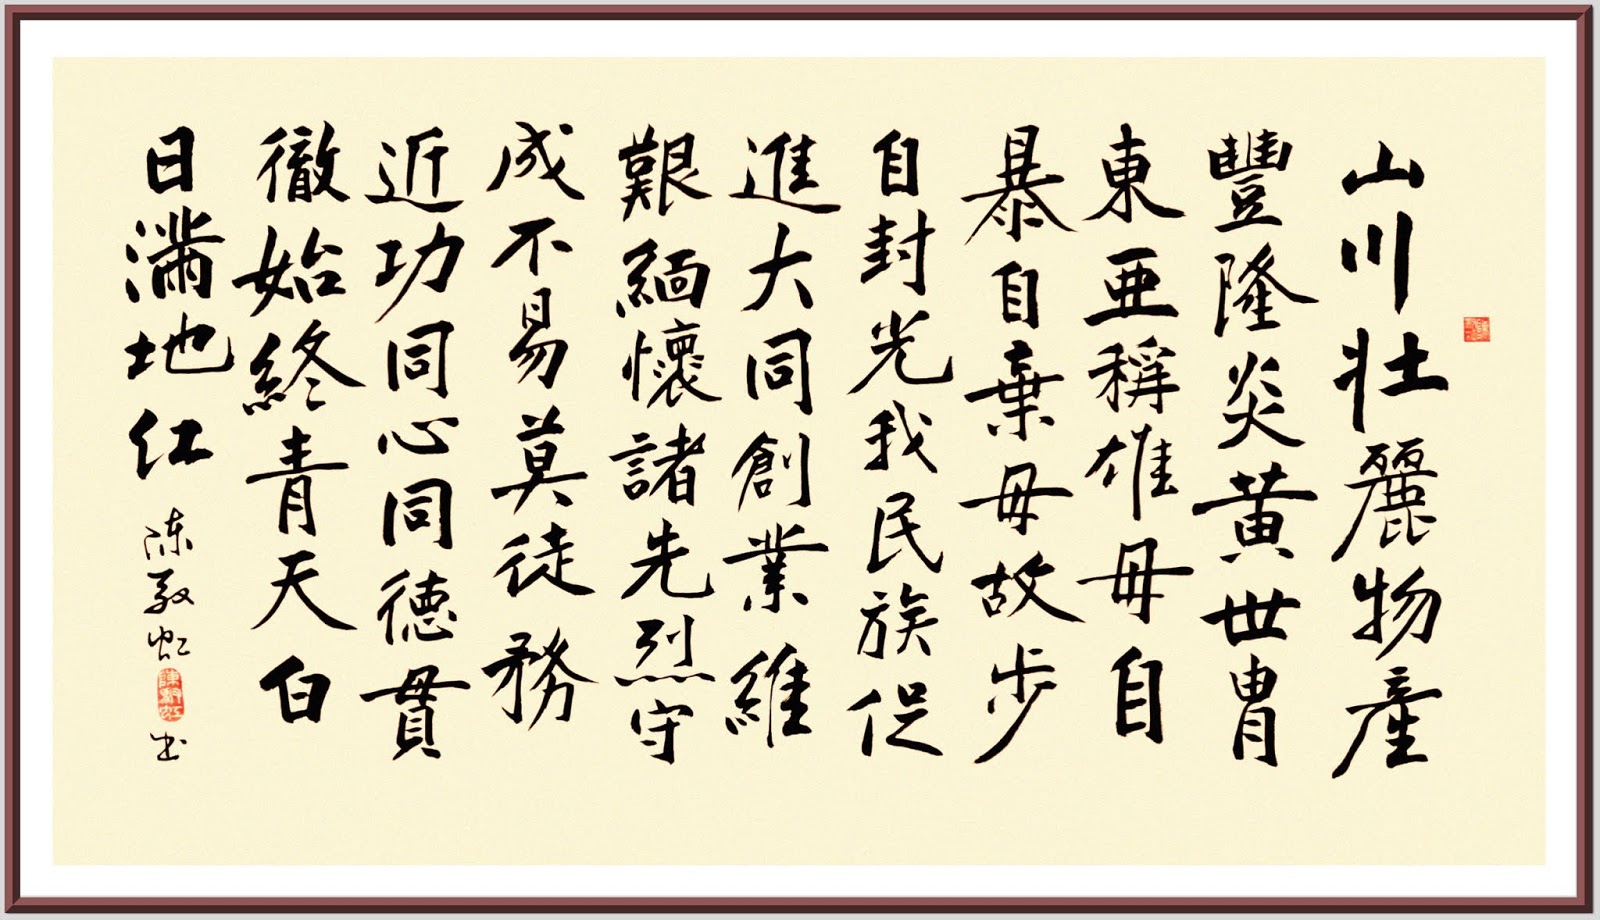 山川壯麗物產
豐隆炎黃世冑
東亞稱雄毋自
暴自棄毋故步
自封光我民族促
進大同創業維
艱緬懷諸先烈守
成不易莫徒務
近功同心同德貫
徹始終青天白
日滿地红
陈 虹 书